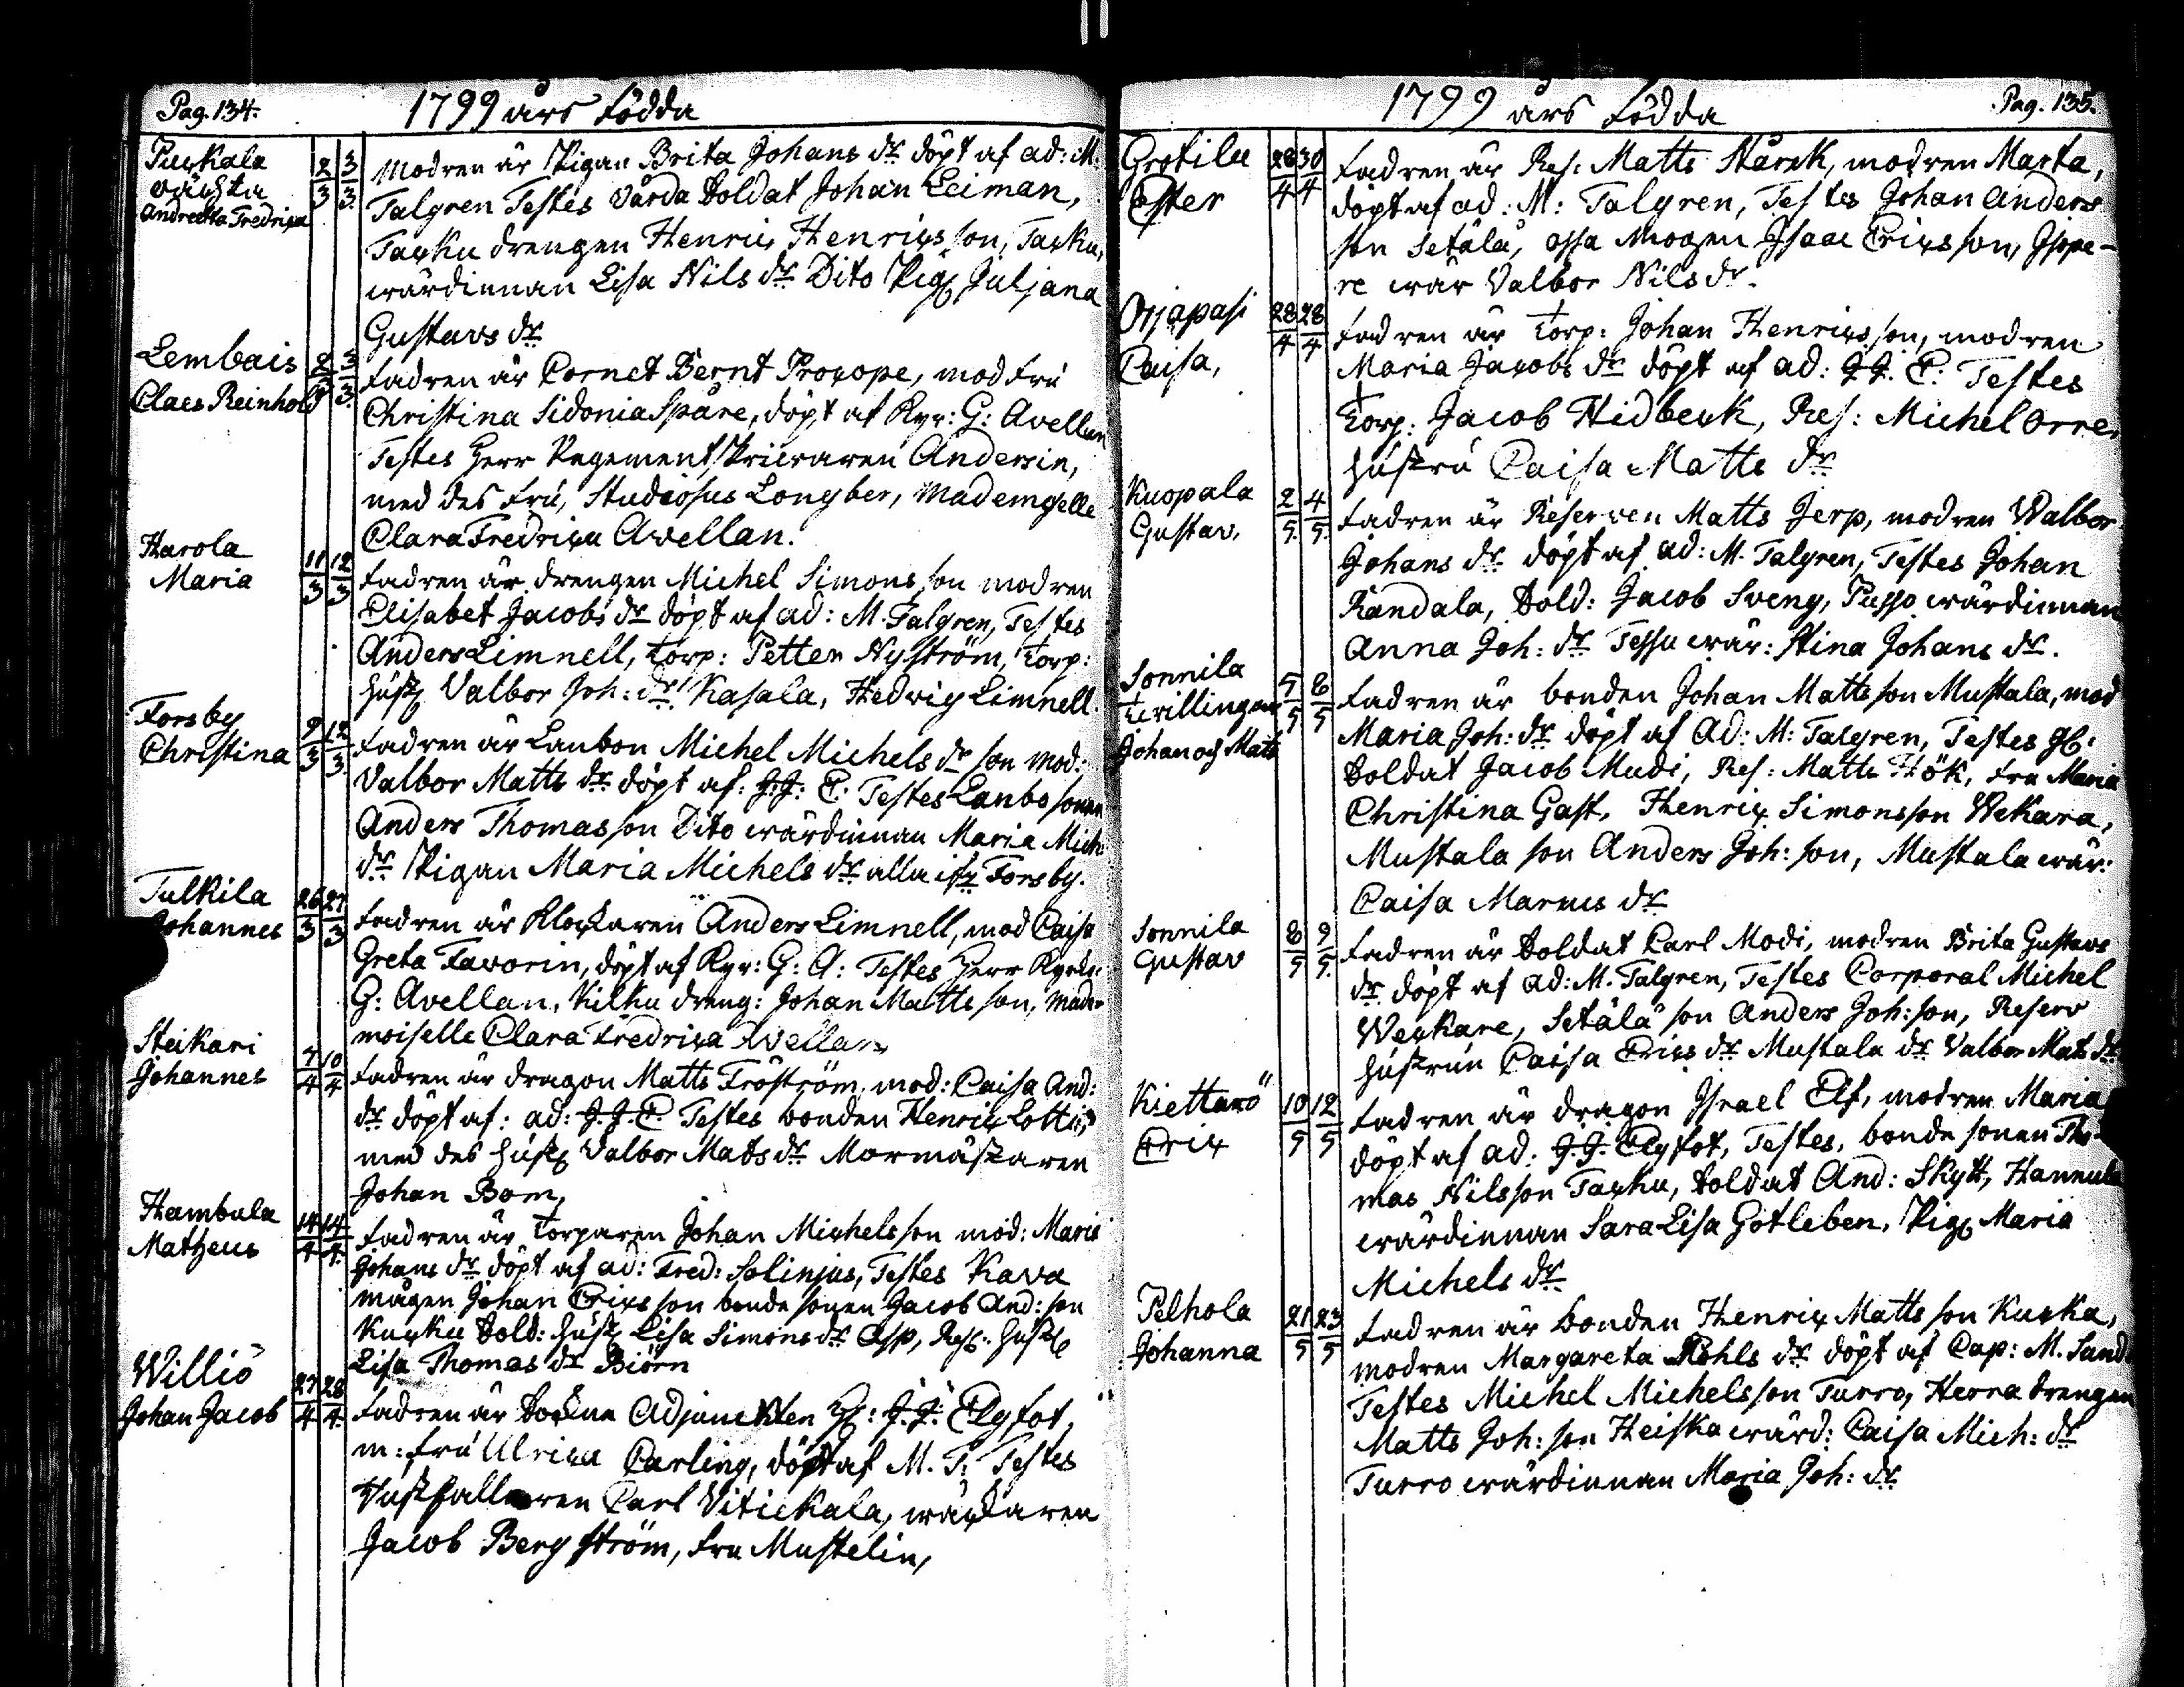 Pag. 134.
1799 års Födda
Puckala
oächta
Andreetta Fredrica
2/3 3/3
Modren är Pigan Brita Johans dr döpt af ad: M:
Talgren Testes Vårda Soldat Johan Leiman,
Tacku drengen Henric Henricsson, Tacku,
wärdinnan Lisa Nils dr Dito Pig Juljana
Gustavs dr
Lembois
Claes Reinhold
2/3 3/3
Fadren är Cornet Bernt Procope, mod Fru
Christina Sidonia Spåre, döpt af Kyr: G: Avellan
Testes Herr Regements Andersin,
med des Fru, Studiosus Longber, Mademgelle
Clara Fredrica Avellan.
Harola
Maria
11/3 12/3
Fadren är drengen Michel Simons son modren
Elisabet Jacobs dr döpt af ad: M. Talgren, Testes
Anders Limnell, Torp: Petter Nyström, Torp:
hust Valbor Joh: dr Kasala, Hedwig Limnell.
Forsby
Christina
9/3 12/3
Fadren är Lanbon Michel Michels dr son mod:
Valbor Matts dr döpt af: J. J. E. Testes Lanbo sonen
Anders Thomasson Dito wärdinnan Maria Mich:
dr Pigan Maria Michels dr alla ifr Forsby.
Tulkila
Johannes
26/3 27/3
Fadren är Klockaren Anders Limnell, mod Caisa
Greta Favorin, döpt af Kyr: G: A: Testes Herr Kyrkh:
G: Avellan, Kilku dreng: Johan Matts son, Made-
moiselle Clara Fredrica Avellan
Steikari
Johannes
7/4 10/4
Fadren är dragon Matts Fröström, mod: Caisa And:
dr döpt af: ad: J. J. E Testes bonden Henric Lottis
med des hust Valbor Mats dr Mormästaren
Johan Bom,
Hambula
Matheus
14/4 14/4
Fadren är Torparen Johan Michelsson mod: Maria
Johans dr döpt af ad: Fred: Solinjus, Testes Kava
mågen Johan Ericsson bonde sonen Jacob And: son
Kucku Sold: hust Lisa Simons dr Asp, Res: hust
Lisa Thomas dr Biörn
Williö
Johan Jacob
27/4 28/4
Fadren är Sockne Adjunckten H: J. J. Elgfot,
m: fru Ulrica Carling, döpt af M. T. Testes
Carl Vitickala, wäcktaren
Jacob Bergström, Fru Mustelin,
Pag. 135.
1799 års Födda
Grotila
Ester
28/4 30/4
Fadren är Res: Matts Starck, modren Marta,
döpt af ad: M: Talgren, Testes Johan Anders
son Setälä, Ossa Mogen Isaac Ericsson, Ispe-
re wär Valbor Nils dr.
Orjapasi
Caisa,
28/4 28/4
Fadren är Torp: Johan Henricsson, modren
Maria Jacobs dr döpt af ad: J. J. E. Testes
Torp: Jacob Hidbeck, Res: Michel Orre,
Hustru Caisa Matts dr
Kuopala
Gustav,
2/5 4/5
Fadren är Reserven Matts Jerp, modren Walbor
Johans dr döpt af ad: M. Talgren, Testes Johan
Randala, Sold: Jacob Sveng, Pusso wärdinnan
Anna Joh: dr Tessu wär: Stina Johans dr.
Sonnila
Twillingar
Johan och Mats
5/5 6/5
Fadren är bonden Johan Mattsson Mustala, mod
Maria Joh: dr döpt af Ad: M: Talgren, Testes gl:
Soldat Jacob Mudi, Res: Matts Hök, Fru Maria
Christina Gast, Henric Simonsson Wekara,
Mustala son Anders Joh: son, Mustala wär:
Caisa Marcus dr
Sonnila
Gustav
8/5 9/5
Fadren är Soldat Carl Modi, modren Brita Gustavs
dr döpt af ad: M. Talgren, Testes Corporal Michel
Weckare, Setälä son Anders Joh: son, Reserv
hustrun Caisa Erics dr Mustala dr Valbor Mats dr
Kiettarö
Eric
10/5 12/5
Fadren är dragon Israel Elf, modren Maria
döpt af ad: J. J. Elgfot, Testes, bonde sonen Tho-
mas Nilsson Tacku, Soldat And: Skytt, Hannula
wärdinnan Sara Lisa Gotleben, Pig Maria
Michels dr
Pelhola
Johanna
21/5 23/5
Fadren är bonden Henric Matts son Kucka,
modren Margareta Pohls dr döpt af Cap: M. Sand
Testes Michel Michelsson Turro, Herra drengen
Matts Joh: son Heiska wärd: Caisa Mich: dr
Turro wärdinnan Maria Joh: dr